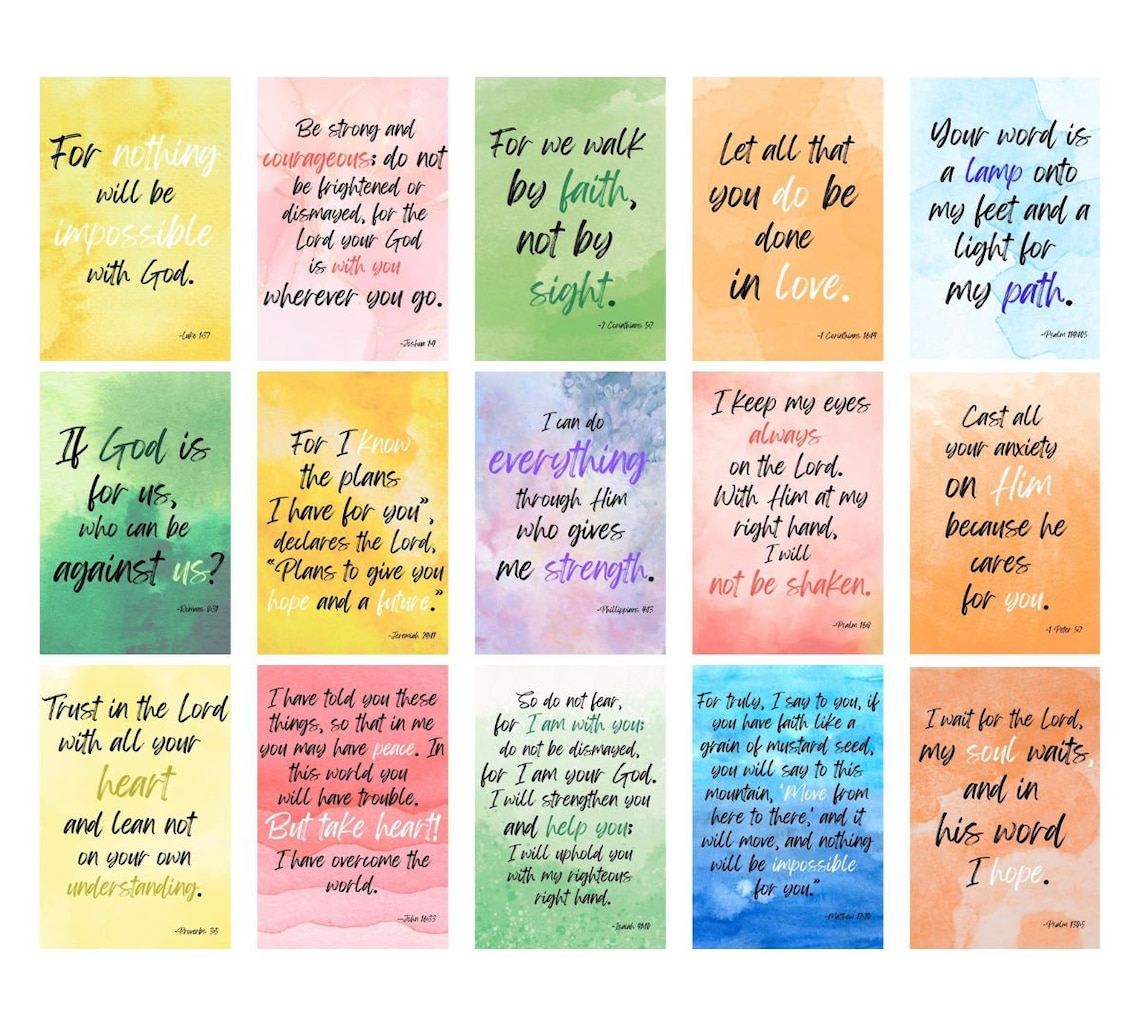 For nothing
will be
impossible
with God.
-Luke 1:37
Be strong and
courageous; do not
be frightened or
dismayed, for the
Lord your God
is with you
wherever you go.
-Joshua 1:9
For we walk
by faith,
not by
sight.
-2 Corinthians 5:7
Let all that
you do be
done
in love.
-1 Corinthians 16:14
Your word is
a lamp onto
my feet and a
light for
my path.
-Psalm 119:105
If God is
for us,
who can be
against us?
-Romans 8:31
For I know
the plans
I have for you",
declares the Lord,
"Plans to give you
hope and a future."
-Jeremiah 29:11
I can do
everything
through Him
who gives
me strength.
-Phillippians 4:13
I keep my eyes
always
on the Lord.
With Him at my
right hand,
I will
not be shaken.
-Psalm 16:8
Cast all
your anxiety
on Him
because he
cares
for you.
-1 Peter 5:7
Trust in the Lord
with all your
heart
and lean not
on your own
understanding.
-Proverbs 3:5
I have told you these
things, so that in me
you may have peace. In
this world you
will have trouble.
But take heart!
I have overcome the
world.
-John 16:33
So do not fear,
for I am with you;
do not be dismayed,
for I am your God.
I will strengthen you
and help you;
I will uphold you
with my righteous
right hand.
-Isaiah 41:10
For truly, I say to you, if
you have faith like a
grain of mustard seed,
you will say to this
mountain, 'Move from
here to there,' and it
will move, and nothing
will be impossible
for you."
-Mathew 17:20
I wait for the Lord,
my soul waits,
and in
his word
I hope.
-Psalm 130:5